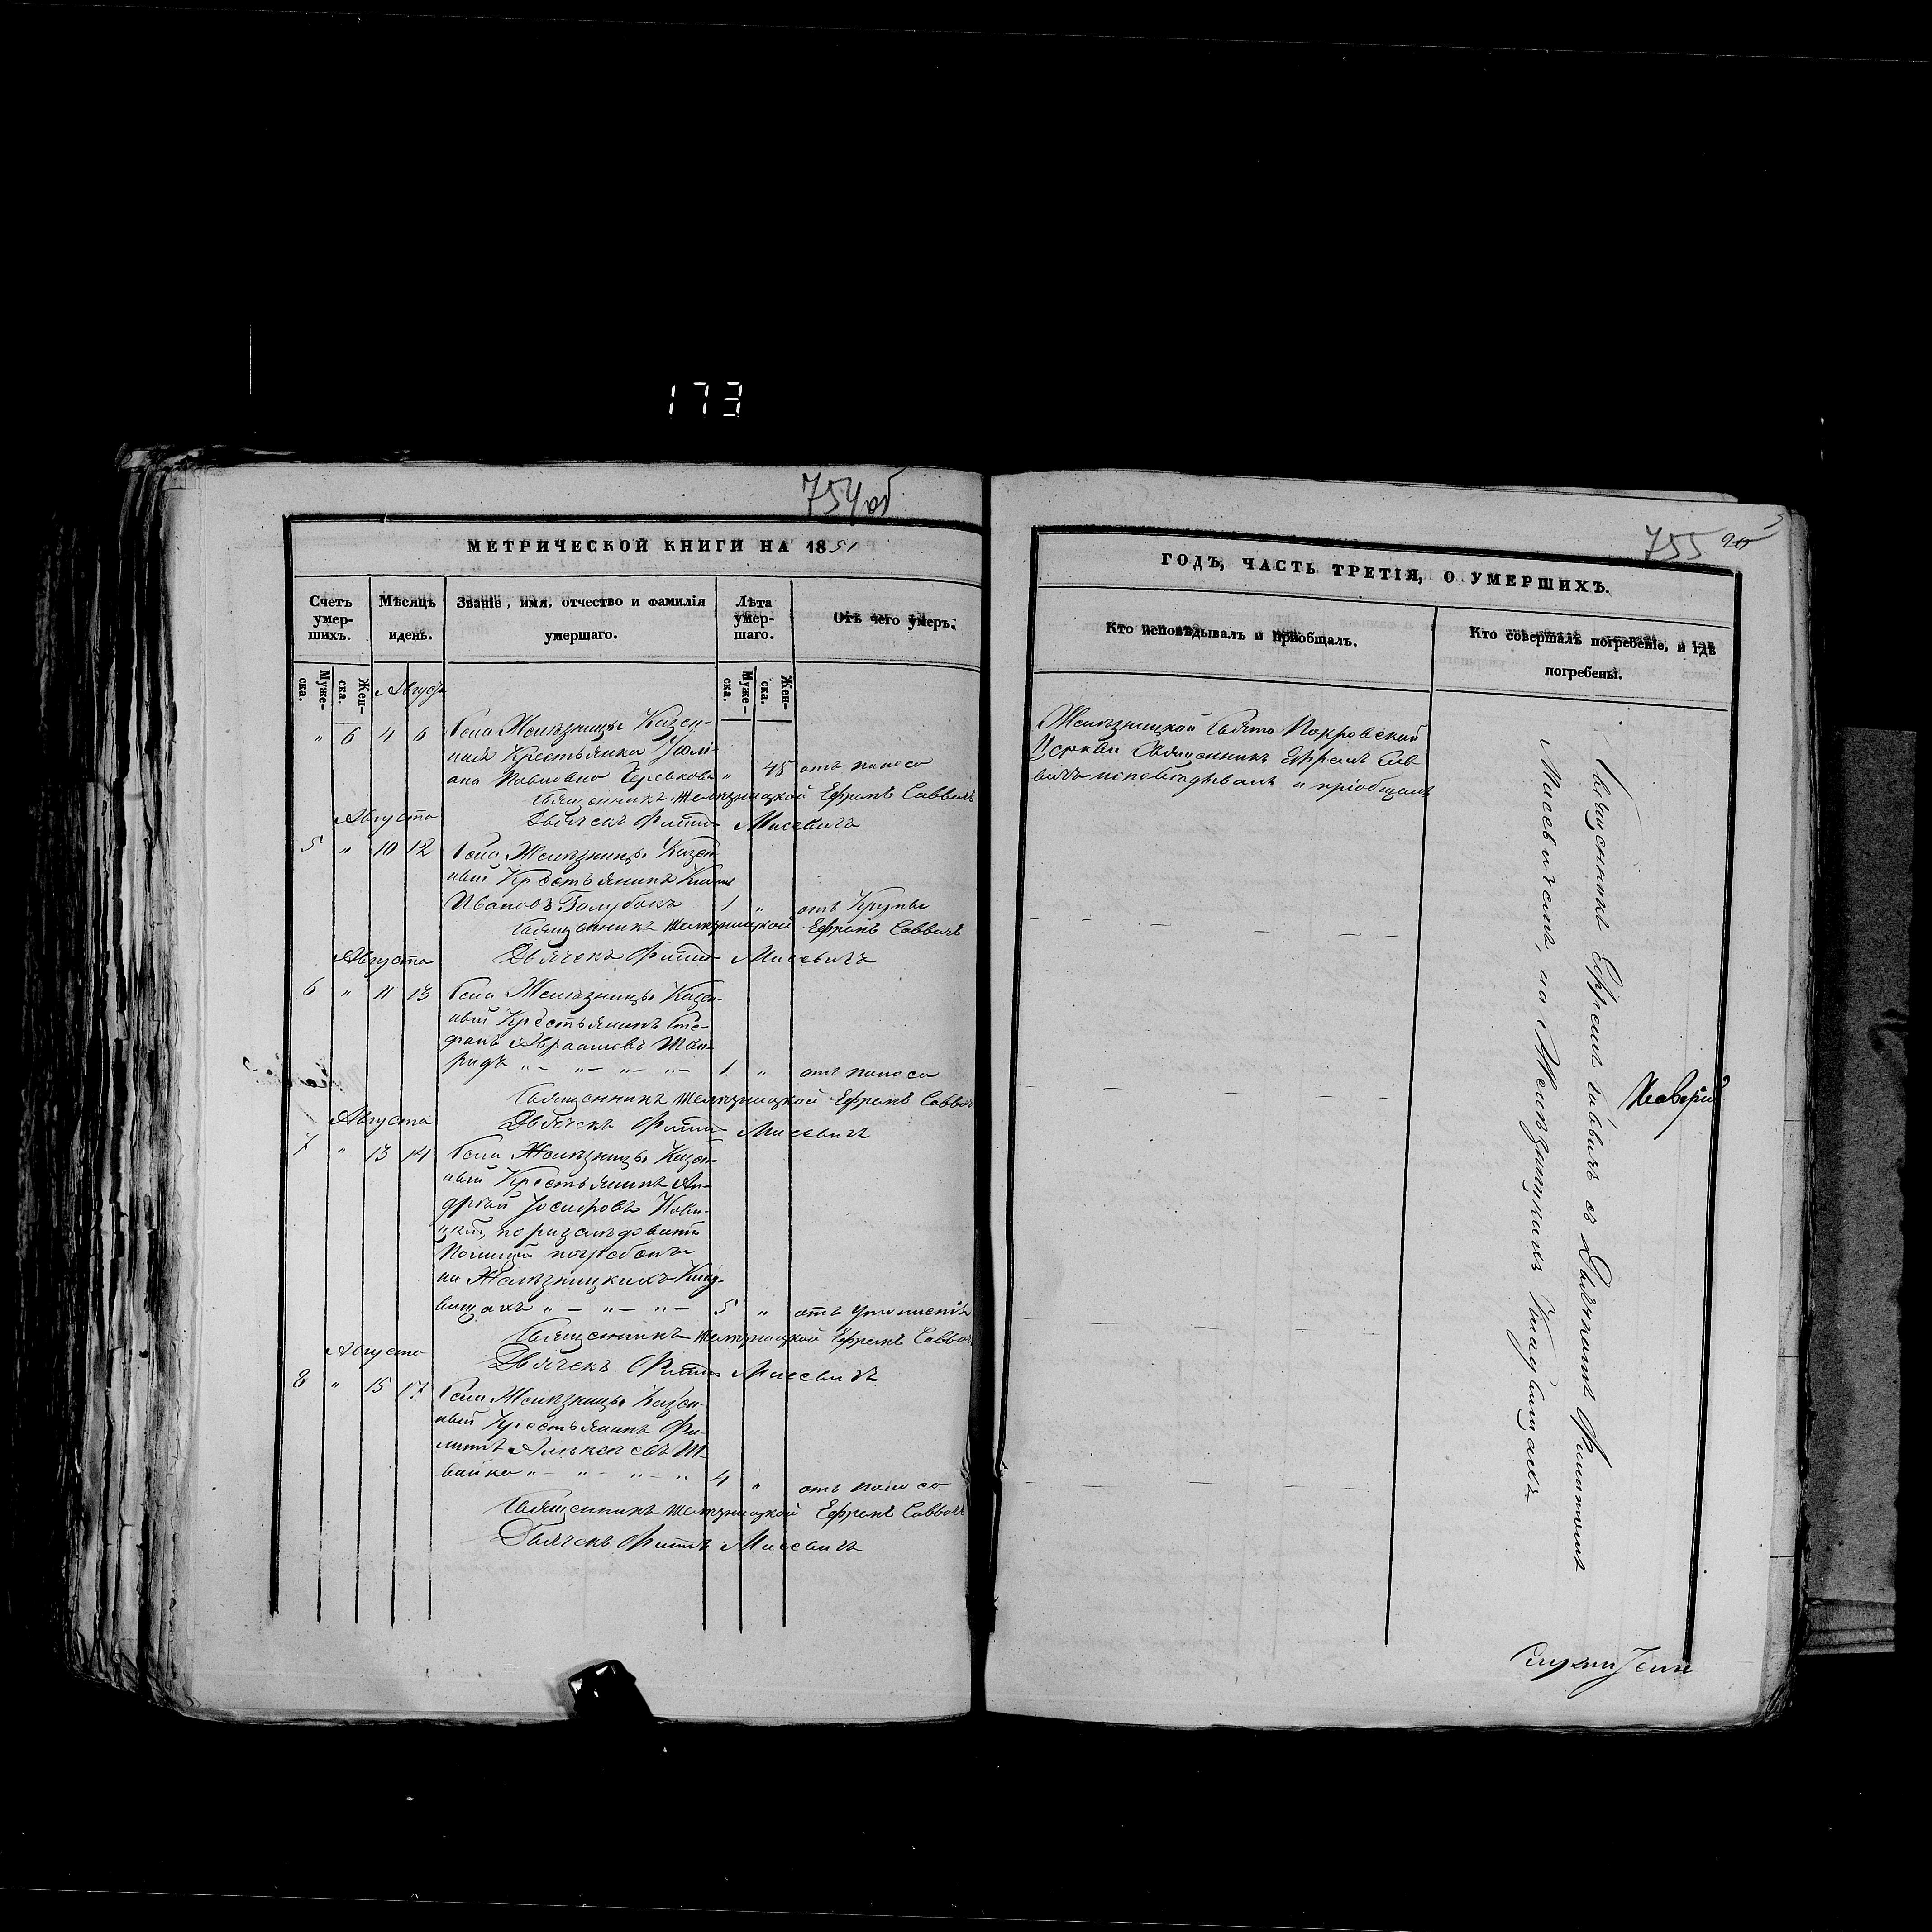 173
754 об
МЕТРИЧЕСКОЙ КНИГИ НА 1851
Счетъ умер-шихъ.
Мѣсяцъ и день.
Званіе, имя, отчество и фамилія умершаго.
Лѣта умер-шаго.
Отъ чего умеръ.
Муже-ска.
Жен-ска.
Муже-ска.
Жен-ска.
Августа
" 6 4 6 Села Желѣзницы Казен-
ная Крестьянка Юлі-
ана Павлова " 45 отъ поноса
Священникъ Желѣзницкой Ефремъ Саввичъ
Дьячекъ Филипъ Мисевичъ
Августа
5 " 10 12 Села Желѣзницы Казен-
ный Крестьянинъ
Ивановъ Голубокъ 1 " отъ Крупы
Священникъ Желѣзницкой Ефремъ Саввичъ
Дьячекъ Филипъ Мисевичъ
Августа
6 " 11 13 Села Желѣзницы Казен-
ный Крестьянинъ Сте-
фанъ
" - " - " - " - 1 " отъ поноса
Священникъ Желѣзницкой Ефремъ Саввичъ
Дьячекъ Филипъ Мисевичъ
Августа
7 " 13 14 Села Желѣзницы Казен-
ный Крестьянинъ Ан-
дрей Іосифовъ
по
Полиціи погребенъ
на Желѣзницкихъ Клад-
бищахъ " - " - " - 5 "
Священникъ Желѣзницкой Ефремъ Саввичъ
Дьячекъ Филипъ Мисевичъ
Августа
8 " 15 17 Села Желѣзницы Казен-
ный Крестьянинъ Фи-
липъ Алексѣевъ
" - " - " - " 4 " отъ поноса
Священникъ Желѣзницкой Ефремъ Саввичъ
Дьячекъ Филипъ Мисевичъ
755
ГОДЪ, ЧАСТЬ ТРЕТІЯ, О УМЕРШИХЪ.
Кто исповѣдывалъ и пріобщалъ.
Кто совершалъ погребеніе, и гдѣ погребены.
Желѣзницкой Свято Покровской
Церкви Священникъ Ефремъ Сав-
вичъ исповѣдывалъ и пріобщалъ
Священникъ Ефремъ Саввичъ съ Дьячкомъ Филиппомъ
Мисевичемъ, на Желѣзницкихъ Кладбищахъ